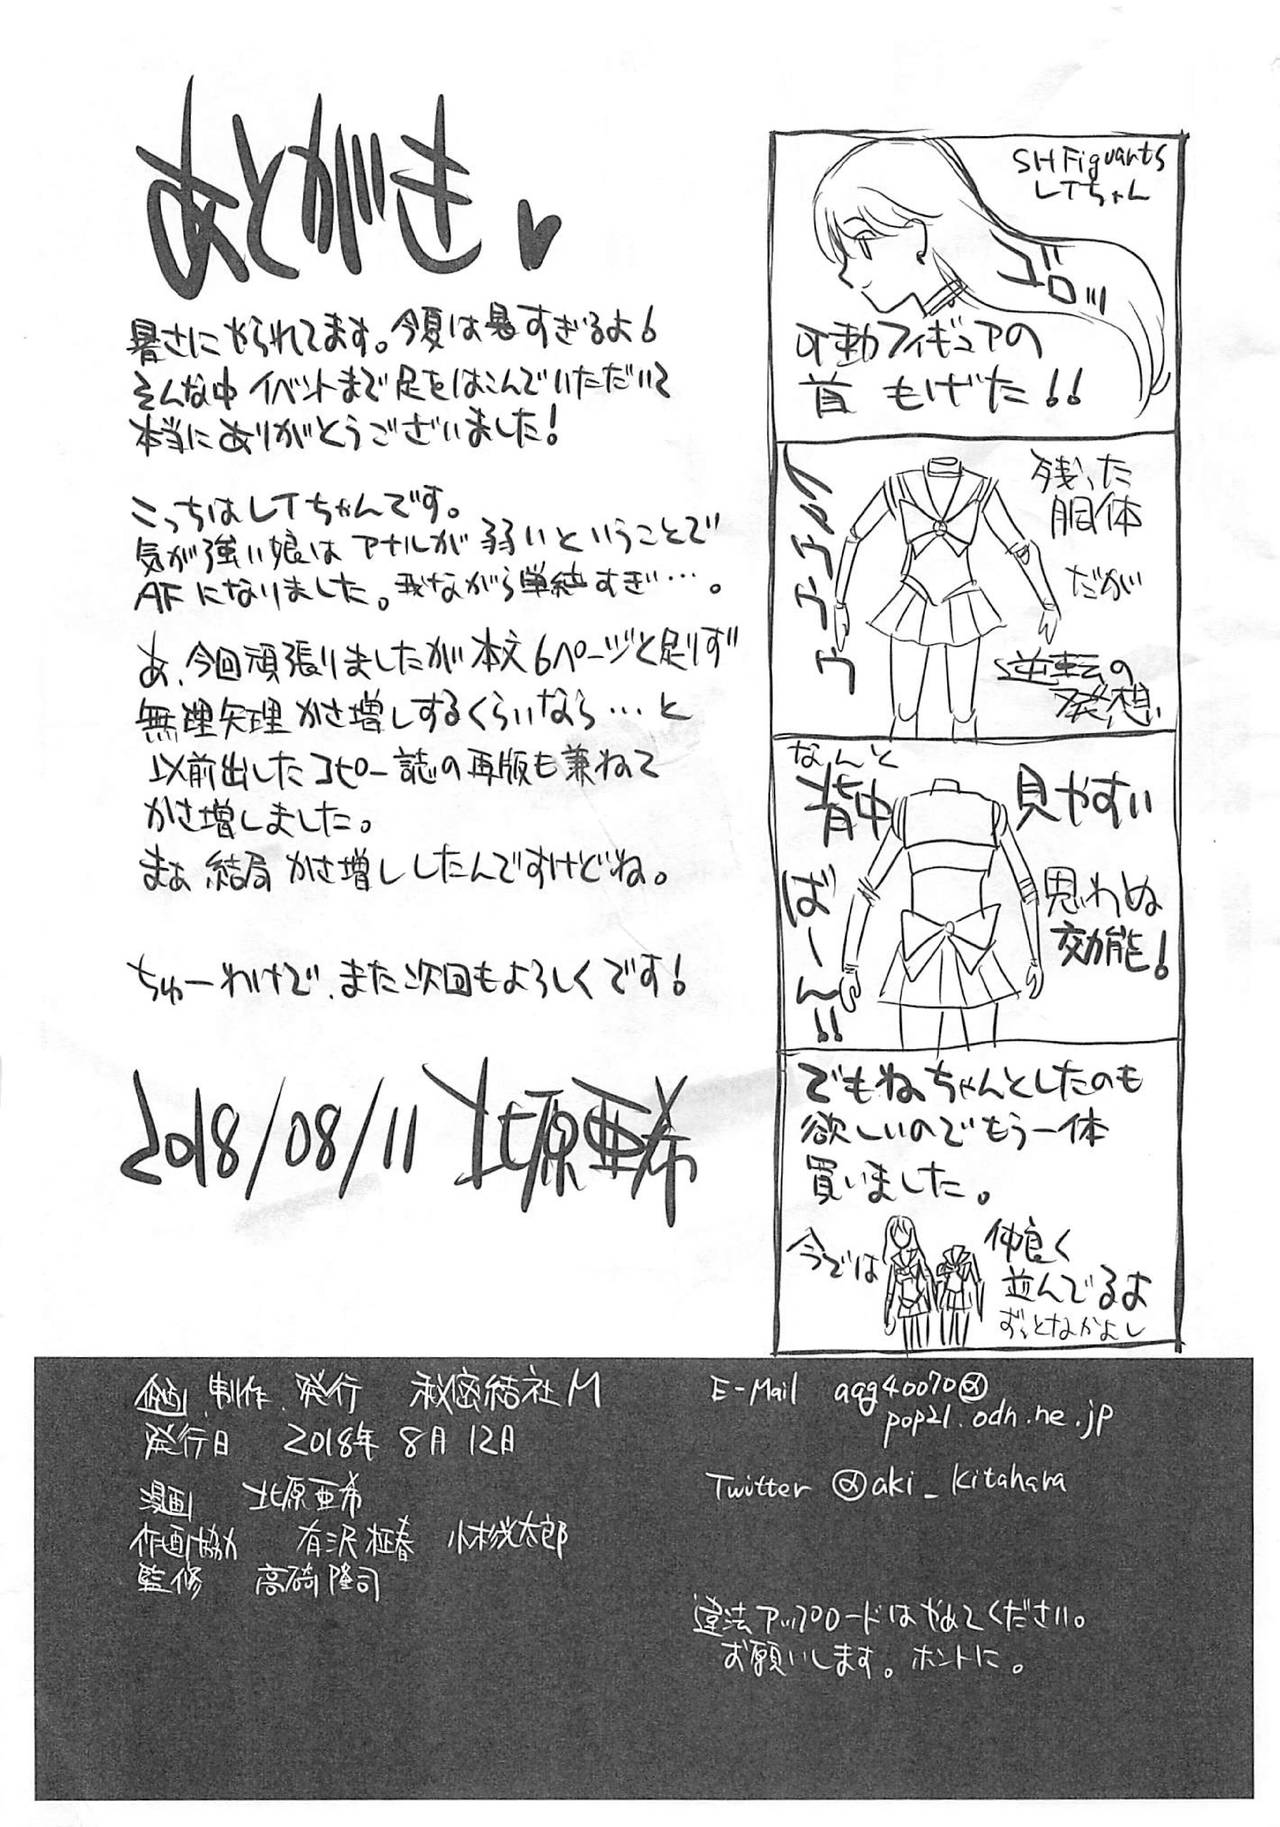 あとがき♥
暑さにやられてます。今夏は暑すぎるよ6
そんな中イベントまで足をはこんでいただいて
本当にありがとうございました!
こっちはLTちゃんです。
気が強い娘はアナルが弱いということで
AFになりました。我ながら単純すぎ…。
あ、今回頑張りましたが本文6ページと足りず
無理矢理かさ増しするくらいなら…と
以前出したコピー誌の再版も兼ねて
かさ増しました。
まぁ結局かさ増ししたんですけどね。
ちゅーわけで、また次回もよろしくです!
2018/08/11 北原亜希
SHFiguarts
LTちゃん
ゴロッ
可動フィギュアの
首もげた!!
残った
胴体
だが
逆転の
発想
なんと
背中
見やすい
ばーん!!
思わぬ
効能!
でもねちゃんとしたのも
欲しいのでもう一体
買いました。
今では
仲良く
並んでるよ
ずっとなかよし
企画、制作、発行 秘密結社M
発行日 2018年8月12日
漫画 北原亜希
作画協力 有沢柾春 小杉光太郎
監修 高碕隆司
E-Mail agg40070@
pop21.odn.ne.jp
Twitter @aki_kitahara
違法アップロードはやめてください。
お願いします。ホントに。